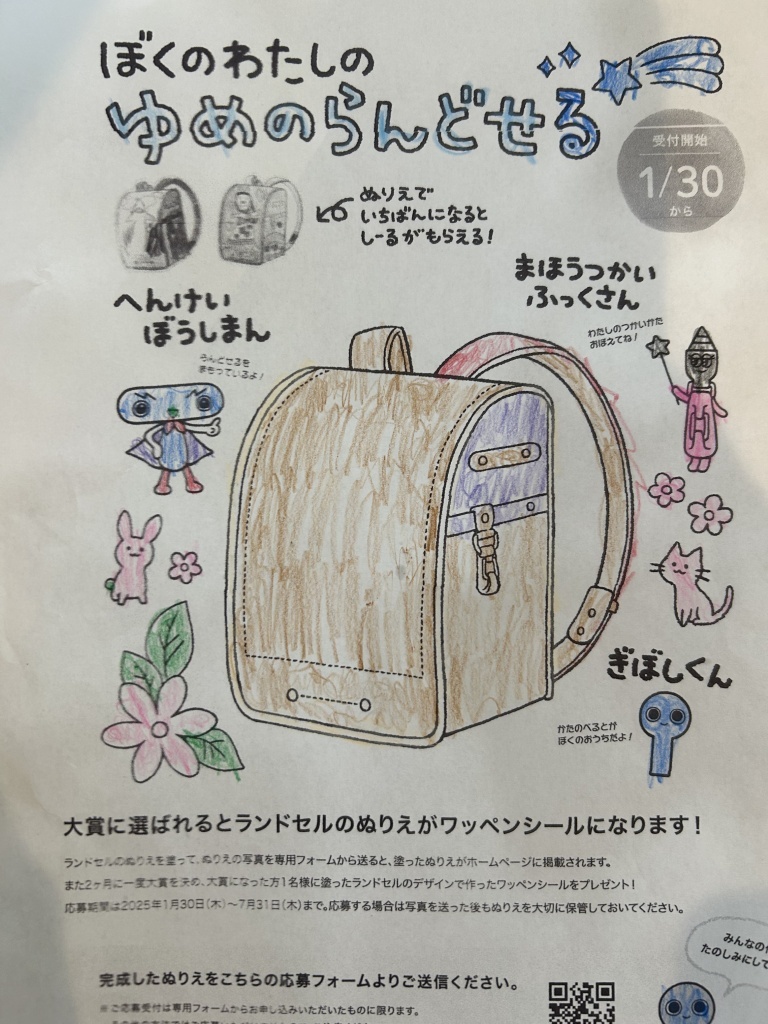 ぼくのわたしの
ゆめのらんどせる
受付開始
1/30
から
ぬりえで
いちばんになると
しーるがもらえる!
へんけい
ぼうしまん
らんどせるを
まもっているよ!
まほうつかい
ふっくさん
わたしのつかいかた
おぼえてね!
ぎぼしくん
かたのべるとが
ぼくのおうちだよ!
大賞に選ばれるとランドセルのぬりえがワッペンシールになります!
ランドセルのぬりえを塗って、ぬりえの写真を専用フォームから送ると、塗ったぬりえがホームページに掲載されます。
また2ヶ月に一度大賞を決め、大賞になった方1名様に塗ったランドセルのデザインで作ったワッペンシールをプレゼント!
応募期間は2025年1月30日(木)〜7月31日(木)まで。応募する場合は写真を送った後もぬりえを大切に保管しておいてください。
みんなの
たのしみにして
完成したぬりえをこちらの応募フォームよりご送信ください。
※ご応募受付は専用フォームからお申し込みいただいたものに限ります。